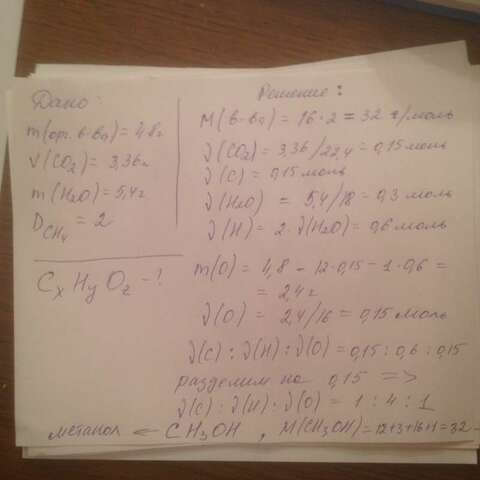 Дано:
m(ор. в-ва) = 4,8г
V(CO₂) = 3,36л
m(H₂O) = 5,4г
D CH₄ = 2
CₓHyOz - ?
Решение:
M(в-ва) = 16·2 = 32 г/моль
ν(CO₂) = 3,36/22,4 = 0,15 моль
ν(C) = 0,15 моль
ν(H₂O) = 5,4/18 = 0,3 моль
ν(H) = 2·ν(H₂O) = 0,6 моль
m(O) = 4,8 - 12·0,15 - 1·0,6 =
= 2,4г
ν(O) = 2,4/16 = 0,15 моль
ν(C) : ν(H) : ν(O) = 0,15 : 0,6 : 0,15
разделим на 0,15 =>
ν(C) : ν(H) : ν(O) = 1 : 4 : 1
метанол <= CH₃OH, M(CH₃OH) = 12+3+16+1 = 32